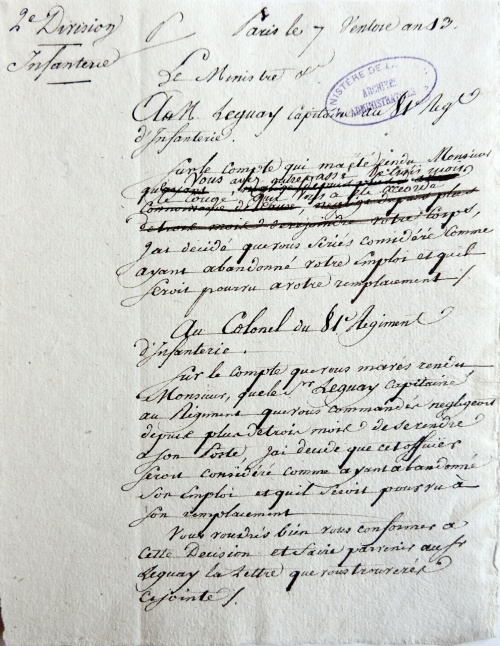 2e Division
Infanterie
P
Paris le 7 Ventose an 13.
Le Ministre &a
A M Leguay Capitaine au 81e Regt
d'Infanterie.
MINISTÈRE DE
ARCHIVES
ADMINISTRATIVES
Sur le compte qui m'a été rendu Monsieur
que vous avez outrepassé de trois mois
le congé qui vous a été accordé
votre corps,
J'ai décidé que vous seriés considéré comme
ayant abandonné votre Emploi et qu'il
seroit pourvu a votre remplacement /.
Au Colonel du 81e Regiment
d'Infanterie.
Sur le compte que vous m'avés rendu
Monsieur, que le Sr Leguay Capitaine
au Regiment que vous commandés negligeoit
depuis plus de trois mois de se rendre
a son Poste, J'ai decidé que cet officier
seroit considéré comme ayant abandonné
son Emploi et qu'il seroit pourvu a
son remplacement
Vous voudrés bien vous conformer a
cette Decision et faire parvenir au Sr
Leguay la Lettre que vous trouverés
ci jointe /.